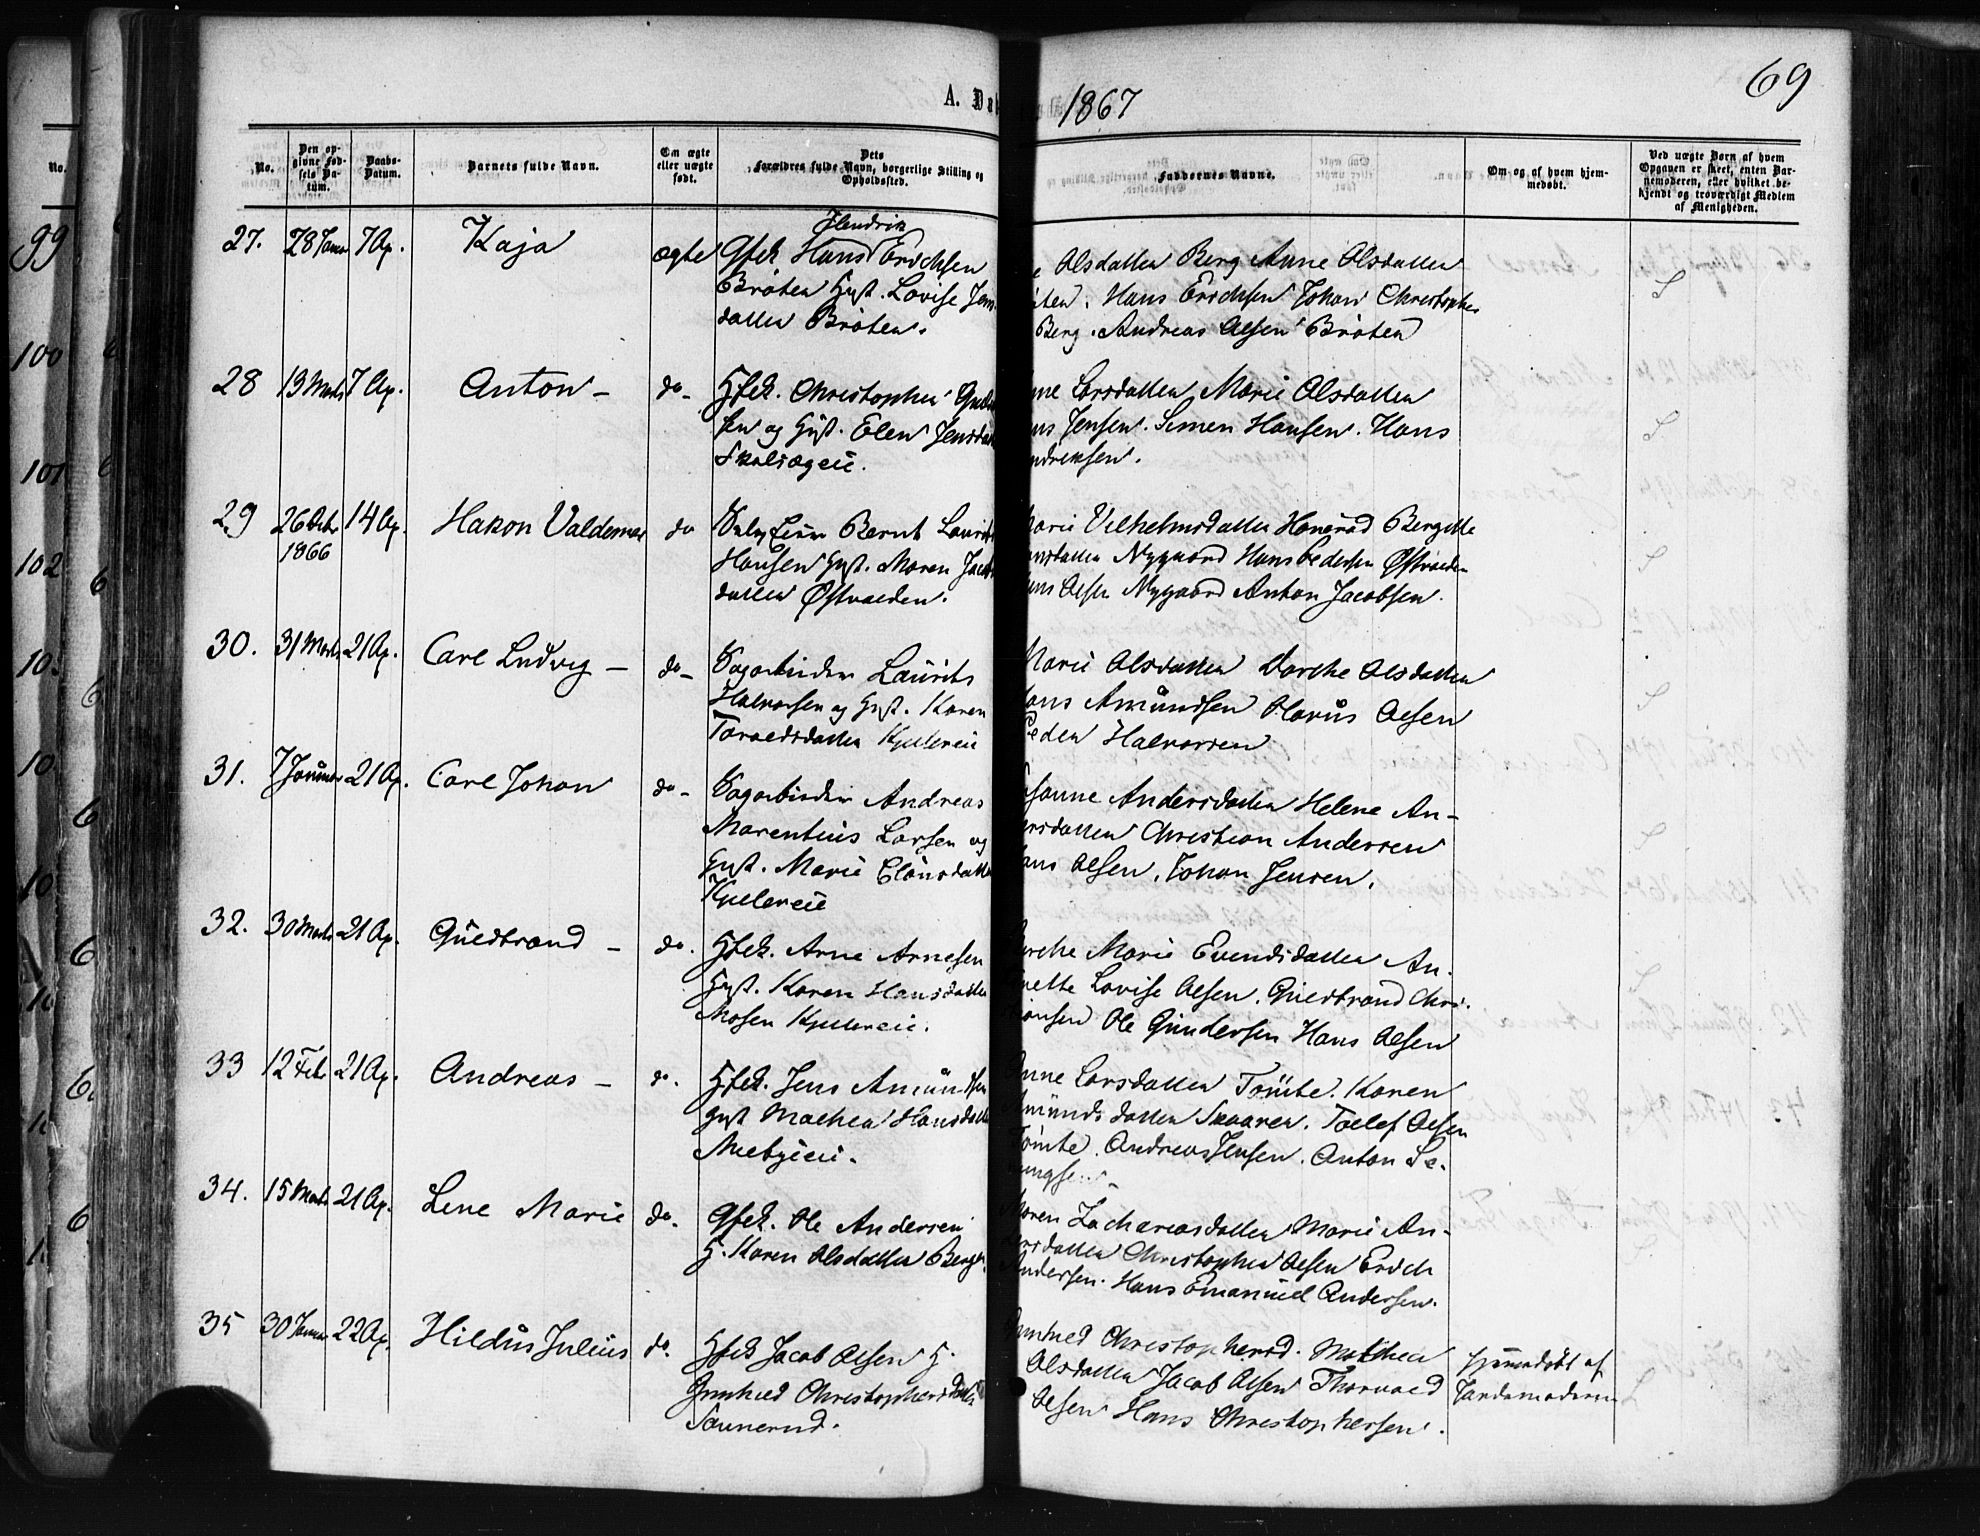 69
A. Døb
1867
No.
Den op-
givne Fød-
sels Da-
tum.
Daabs-
Datum.
Barnets fulde Navn.
Om ægte
eller uægte
født.
Dets
Forældres fulde Navn, borgerlige Stilling og
Opholdssted.
Faddernes Navne.
Om og af hvem hjem-
medøbt.
Ved uægte Børn af hvem
Opgaven er skeet, enten Bar-
nemoderen, eller hvilket be-
kjendt og troværdigt Medlem
af Menigheden.
27. 28 Januar 7 Ap. Kaja ægte
Hendrik
Gfek Hans Erichsen
Bråten Hust. Lovise Jens
datter Bråten.
Olsdatter Berg Anne Olsdatter
Hans Erichsen Johan Christopher
Berg. Andreas Olsen Bråten
28 13 Marts 7 Ap. Anton - do -
Hfek. Christopher
sen og Hust. Elen Jensdat
Larsdatter Marie Olsdatter
Jensen. Simen Hansen. Hans
29 26 Octbr 1866 14 Ap. Hakon Valdemar do
Bernt Laurits
Hansen Hust. Maren Jacobs
datter Østvolden.
Marie Vilhelmsdatter Bergitte
Nygaard Hans Pedersen Østvolden
Olsen Nygaard Anton Jacobsen.
30. 31 Marts 21 Ap. Carl Ludvig - do -
Sagarbeider Laurits
Halvorsen og Hust. Karen
Toraldsdatter Kjellereie
Marie Olsdatter Dorthe Olsdatter
Hans Amundsen Olaus Olsen
Peder Halvorsen
31. 7 Januar 21 Ap. Carl Johan do -
Sagarbeider Andreas
Marentius Larsen og
Hust. Marie Clausdatter
Kjellereie
Susanne Andersdatter Helene An-
dersdatter Christian Andersen
Hans Olsen. Johan Jensen.
32. 30 Marts 21 Ap. Guldbrand - do.
Hfek. Arne Arnesen
Hust. Karen Hansdatter
Mosen Kjellereie.
Dorthe Marie Evendsdatter An-
nette Lovise Olsen. Guldbrand Chri-
stiansen Ole Gundersen Hans Olsen
33 12 Febr 21 Ap. Andreas - do.
Hfek. Jens Amundsen
Hust Mathea Hansdatter
Anne Larsdatter Tømte. Karen
Amundsdatter Skaaren. Tollef Olsen
Tømte. Andreas Jensen. Anton
34. 15 Marts 21 Ap. Lene Marie do.
Gfek. Ole Andersen
H. Karen Olsdatter Berger
Maren Zachariasdatter Marie An-
dersdatter Christopher Olsen Erich
Andersen. Hans Emanuel Andersen.
35 30 Januar 22 Ap. Hildus Julius do.
Hfek Jacob Olsen H.
Gunhild Christophersdatter
Sønnerud.
Gunhild Christophersd. Mathea
Olsdatter Jacob Olsen Thorvald
Olsen Hans Christophersen.
hjemmedøbt af
Jordemoderen